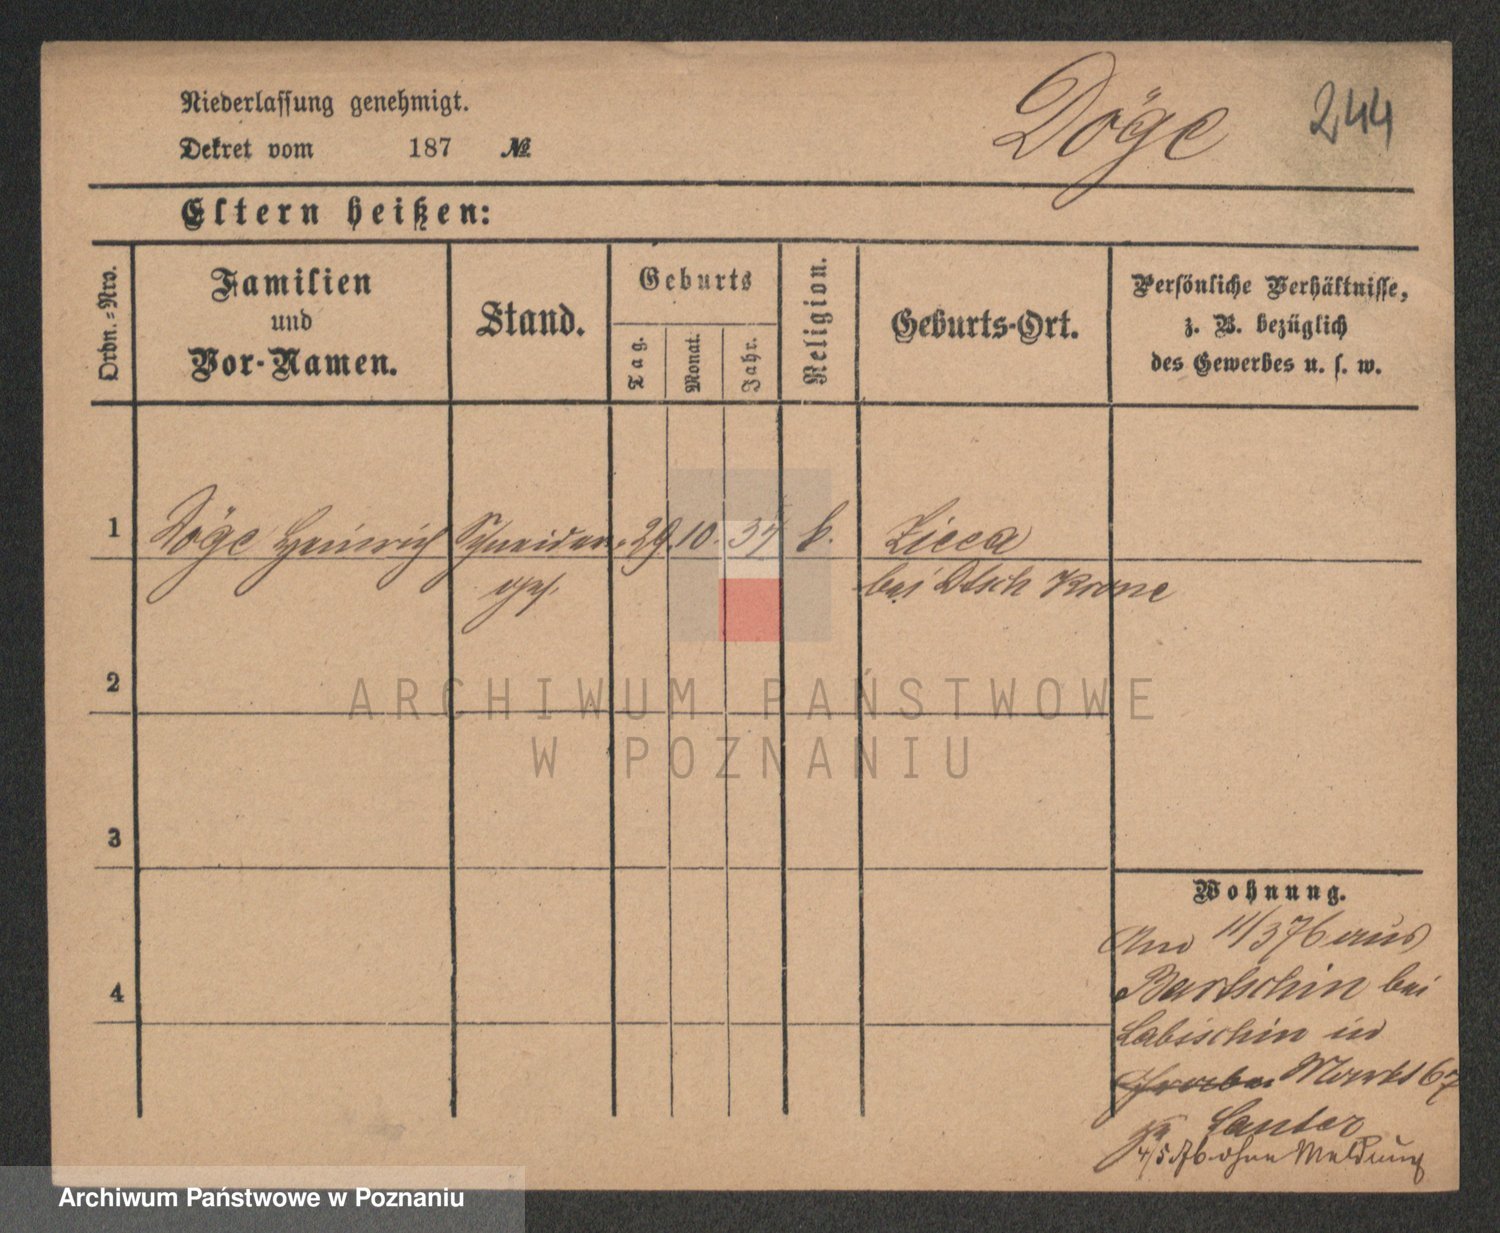 Niederlassung genehmigt.
Döge
244
Dekret vom 187 №
Eltern heißen:
Ordn.-Nro.
Familien
und
Vor-Namen.
Stand.
Geburts
Tag.
Monat.
Jahr.
Religion.
Geburts-Ort.
Persönliche Verhältnisse,
z. B. bezüglich
des Gewerbes u. s. w.
1 Döge Heinrich Schneider 29. 10. 37 k. Zicca
ges. bei Dtsch Krone
2
ARCHIWUM PAŃSTWOWE
W POZNANIU
3
Wohnung.
Am 11/3 76 aus
Bartschin bei
4
Labischin in
Markt 67
Santer
4/5 76 ohne Meldung
Archiwum Państwowe w Poznaniu